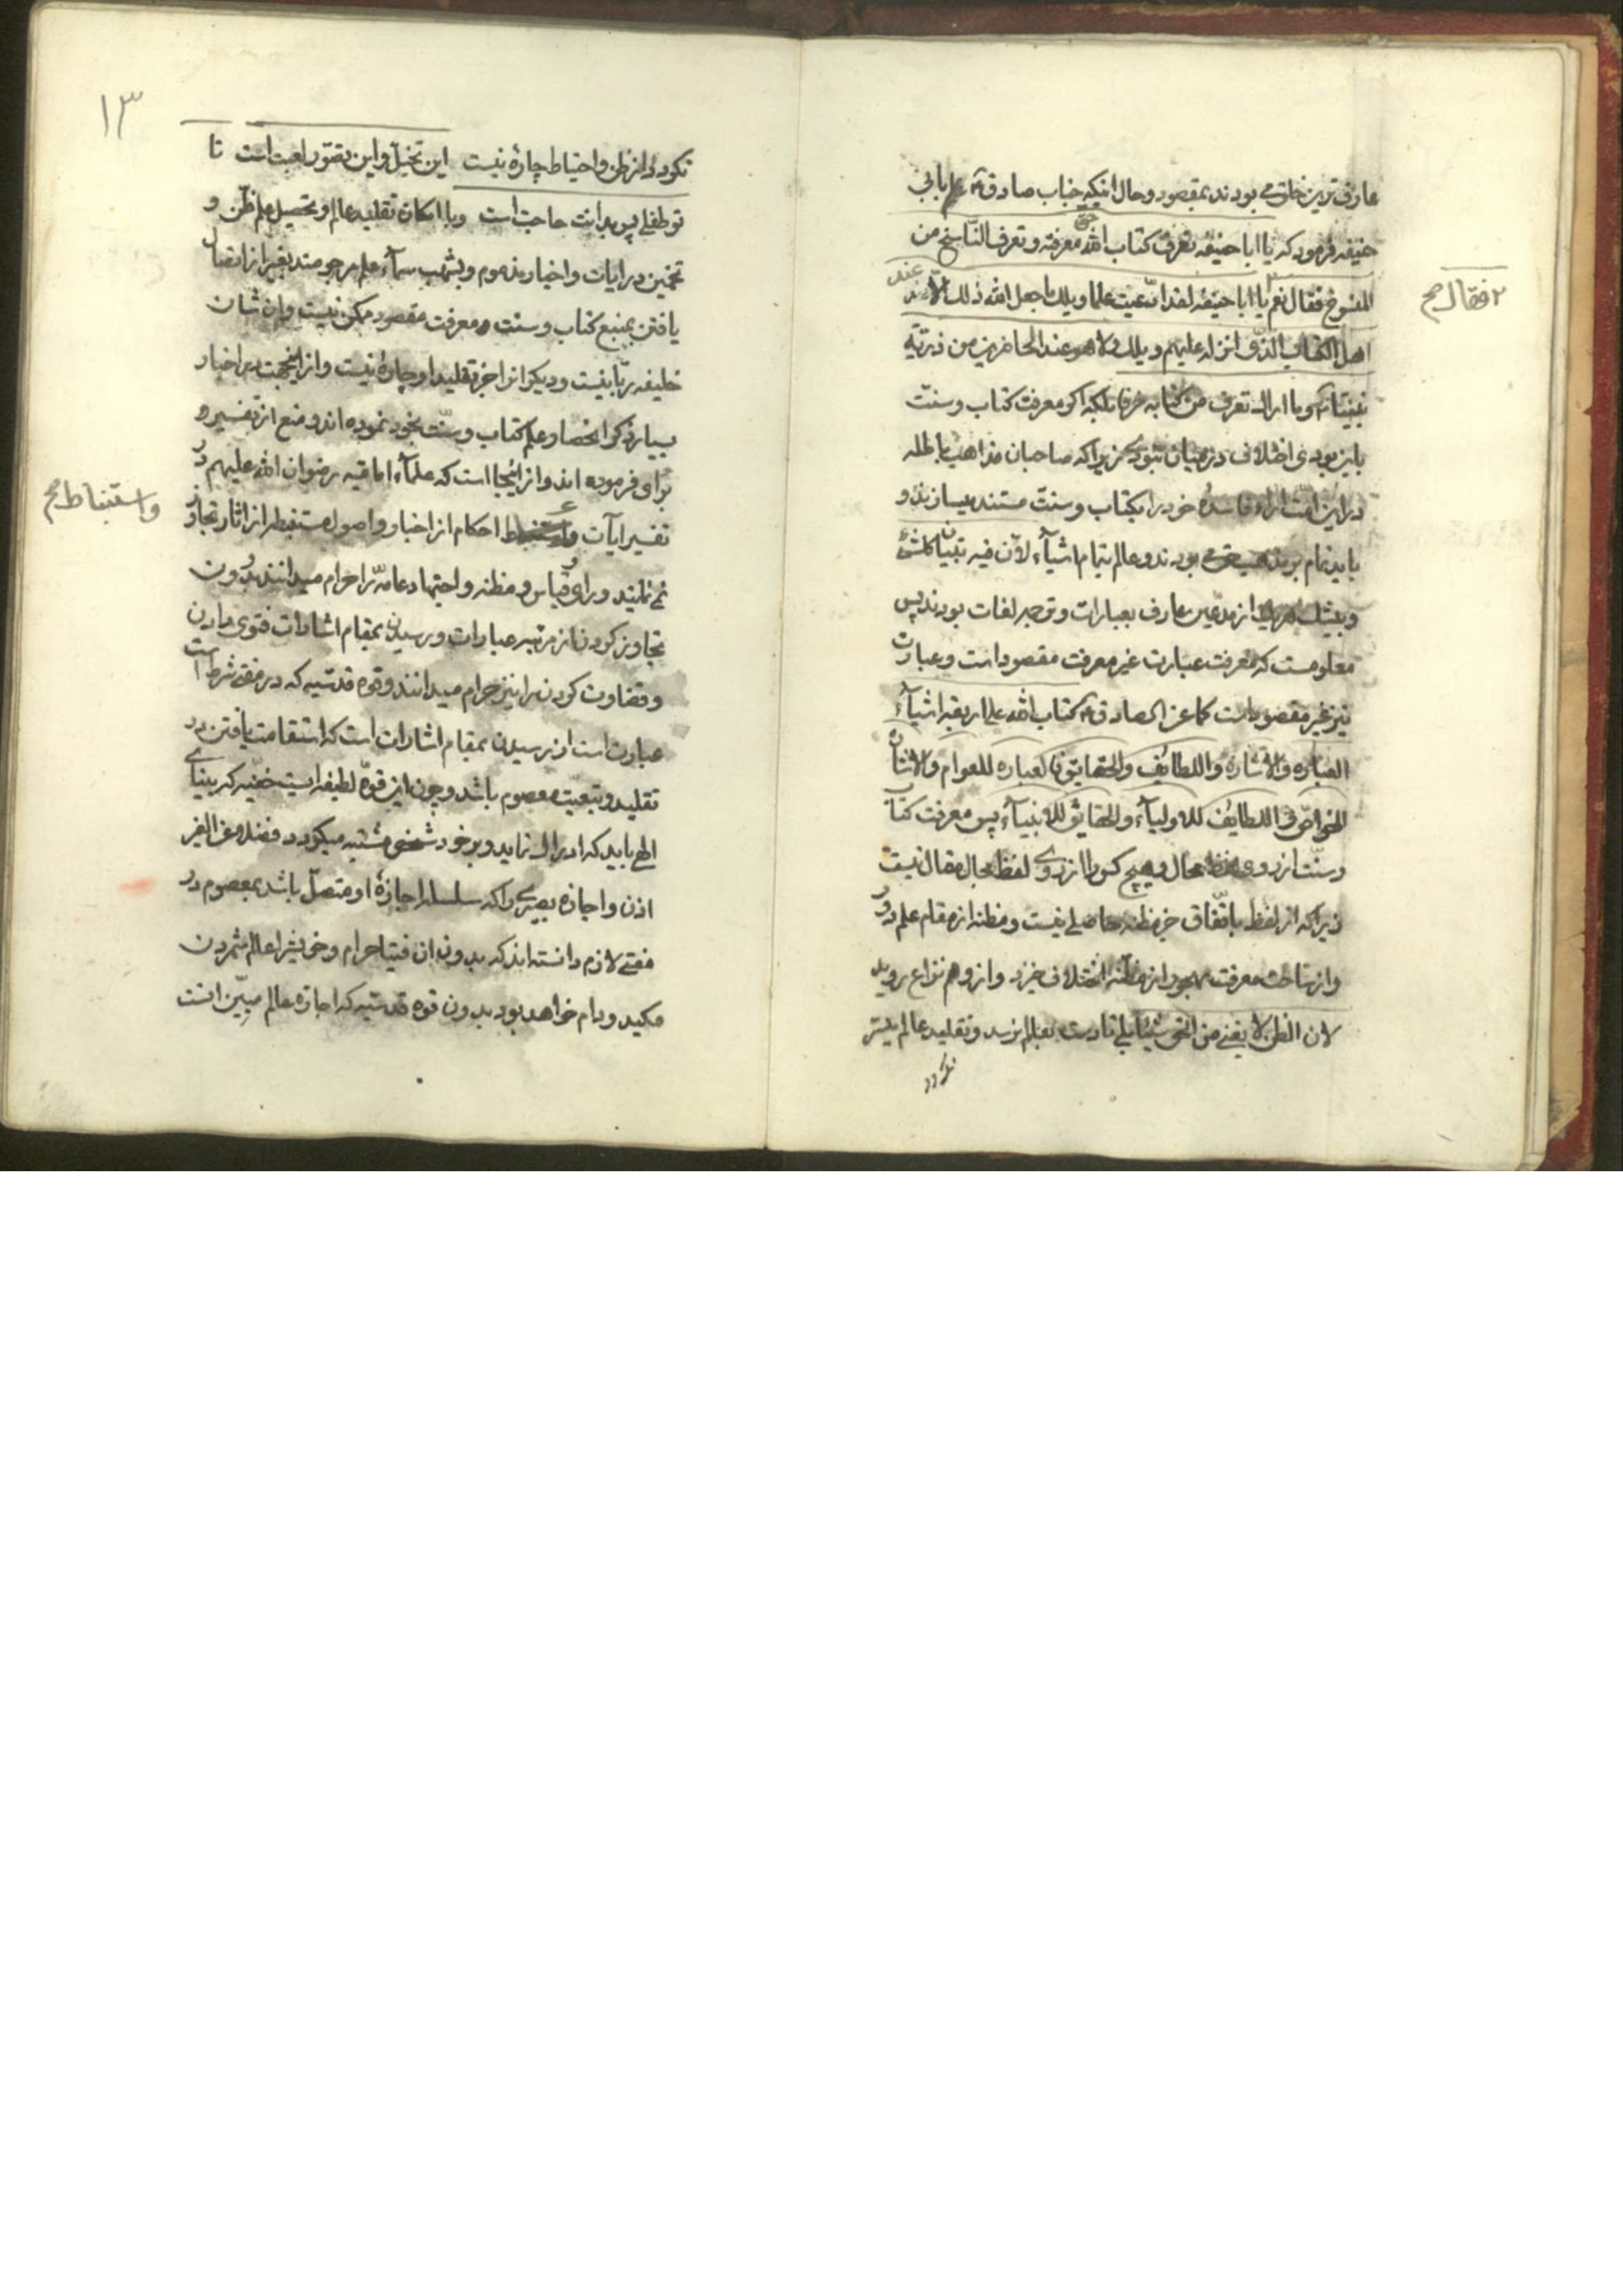 عارف ترین خلق می بودند بمقصود و حال اینکه جناب صادق ۴ بابی
حنیفه فرمود که یا ابا حنیفه تعرف کتاب الله حق معرفته و تعرف الناسخ من
المنسوخ فقال نعم یا ابا حنیفه لقد ادّعیت علما ویلک ما جعل الله ذلک الّا عند
اهل الکتاب الذی انزله علیهم ویلک ولا هو عند الخاص من ذریّة
نبیّنا وما اراک تعرف من کتابه حرفا بلکه اکر معرفت کتاب و سنت
باین بودی اختلاف در میان نبودی زیرا که صاحبان مذاهب باطله
در این امّت آراء فاسده خود را بکتاب و سنت مستند میسازند و
باید تمام بر مذهب حق بودند و عالم بتمام اشیاء لان فیه تبیان کلشئ
و بیشک از مدعین عارف بعبارات و ترجمه لغات بودند پس
معلومست که معرفت عبارت غیر معرفت مقصود است و عبارت
نیز غیر مقصود است کما عن الصادق ۴ کتاب الله علی اربعة اشیاء
العبارة والاشارة واللطایف والحقایق فالعبارة للعوام والاشارة
للخواصّ واللطایف للاولیاء والحقایق للانبیاء پس معرفت کتاب
و سنّت از روی محال و هیچ کس را از روی لفظ مجال مقال نیست
زیرا که از لفظ باتفاق جز مظنه حاصلی نیست و مظنه از مقام علم دور
و از ساحت معرفت مهجور از مظنه اختلاف خیزد و از وهم نزاع روید
لان الظن لا یغنی من الحق شیئا بلی تا دست بعالم نرسد و تقلید عالم میسّر
نکردد
۲ فقال صح
۱۳
نکردد از ظن و احتیاط چارهٔ نیست این تخیّل و این تصوّر لعبت است تا
تو طفلی پس بدانت حاجت است و با امکان تقلید عالم و تحصیل علم ظن و
تخمین در ایات و اخبار مذموم و بشهب سماء علم مرجومند بغیر از اتصال
یافتن بمنبع کتاب و سنت معرفت مقصود ممکن نیست وان شان
خلیفه ربّانیست و دیکران را جز تقلید او چارهٔ نیست و از اینجهت در اخبار
بسیار ذکر انحصار علم کتاب و سنّت بخود نموده اند و منع از تفسیر
برای فرموده اند و از اینجا است که علماء امامیه رضوان الله علیهم در
تفسیر ایات و احکام از اخبار و اصول مستنبطه از اثار تجاوز
نمی نمایند و رای و قیاس و مظنه و اجتهاد عامّه را حرام میدانند بدون
تجاوز کردن از مرتبه عبارات و رسیدن بمقام اشارات فتوی دادن
و قضاوت کردن را نیز حرام میدانند و قوه قدسیه که در مفتی شرط است
عبارت است از رسیدن بمقام اشارات است که استقامت یافتن در
تقلید و تبعیّت معصوم باشد و چون این قوّه لطیفه ایست خفیّه که بینای
الهی باید که ادراک نماید و بر خود شخص مشتبه میکردد فضلا عن الغیر
اذن و اجازه بصیری را که سلسله اجازهٔ او متصل باشد بمعصوم در
مفتی لازم دانسته اند که بدون ان فتیا حرام و خویش را عالم شمردن
مکید و دام خواهد بود بدون قوه قدسیه که اجازه عالم مبیّن انست
و استنباط صح